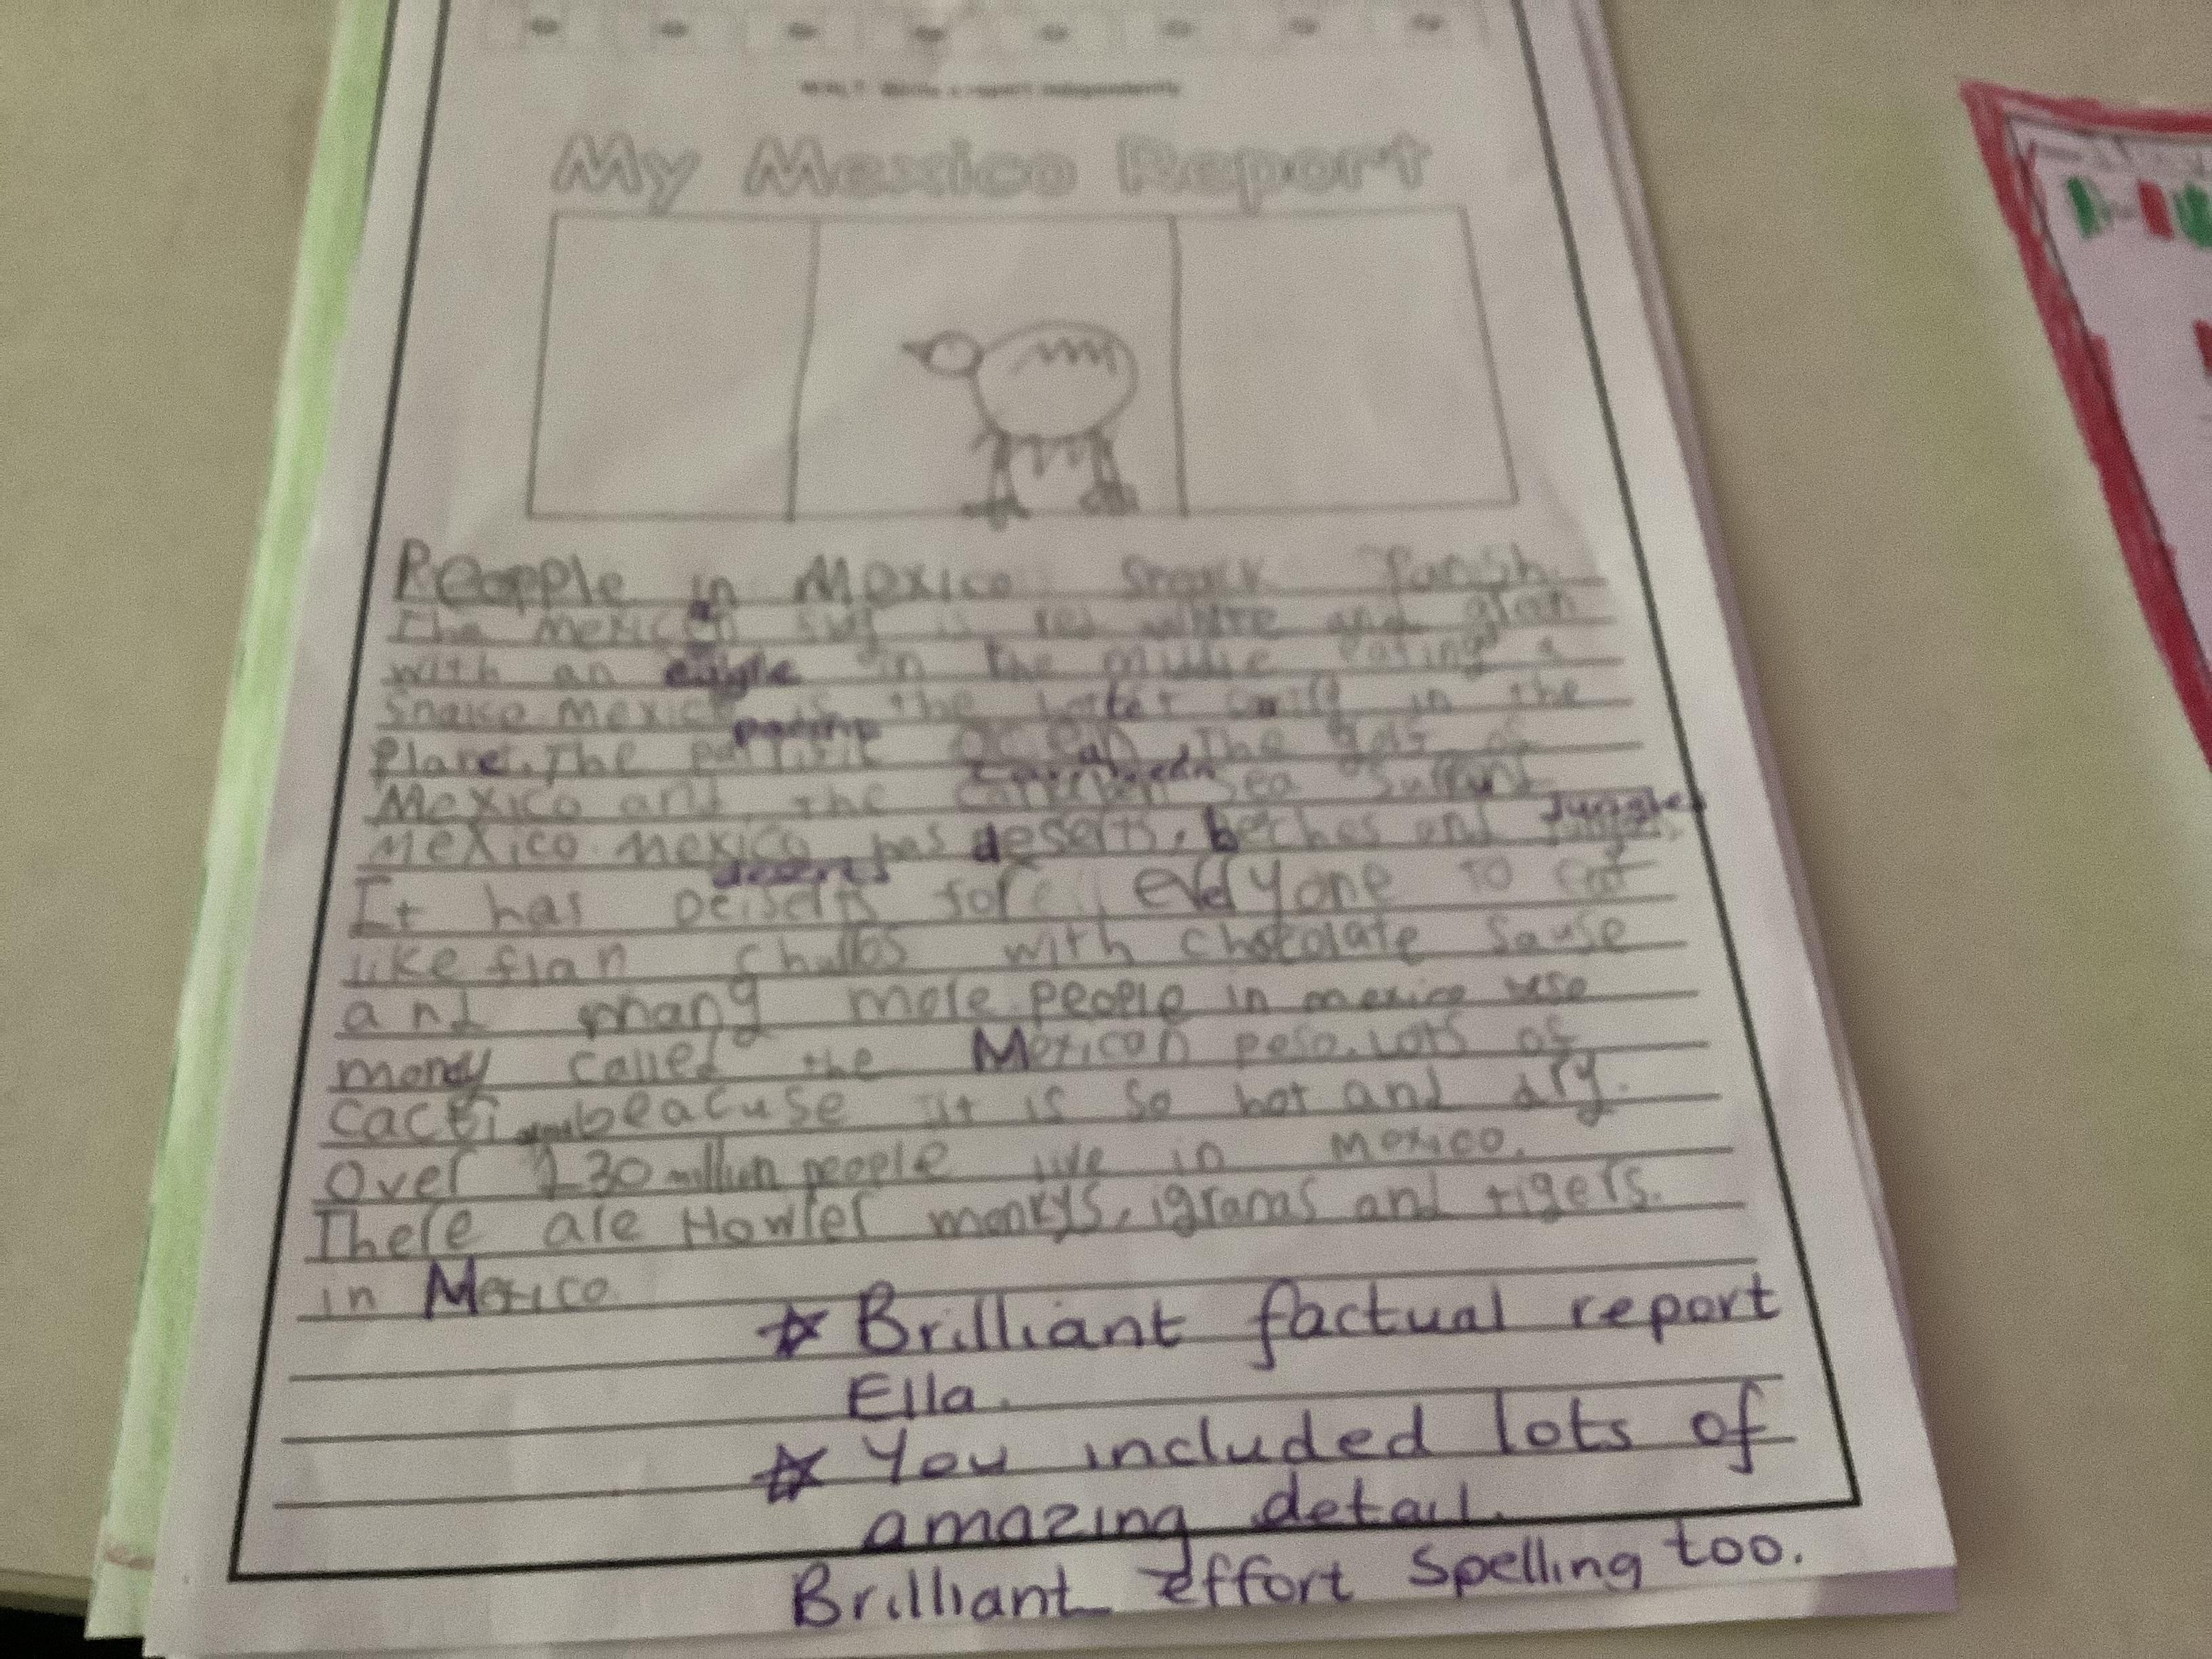 WALT: Write a report independently
My Mexico Report
Peopple in Mexico
The mexican is white and
with an eagle in the middle eating a
Mexico the in the
Planet. The pacific Ocean, The of
Mexico and the Caribbean Sea
Mexico. mexico has deserts, beches and Jungles
desserts
It has deiserts for everyone to eat
like flan chullos with chocolate sause
and many more. people in mexico use
money called the Mexican peso. Lots of
cacti beacuse it is so hot and dry.
Over 130 million people live in Mexico.
There are Howler monkys, igranas and tigers.
in Mexico
☆ Brilliant factual report
Ella.
☆ You included lots of
amazing detail.
Brilliant effort spelling too.